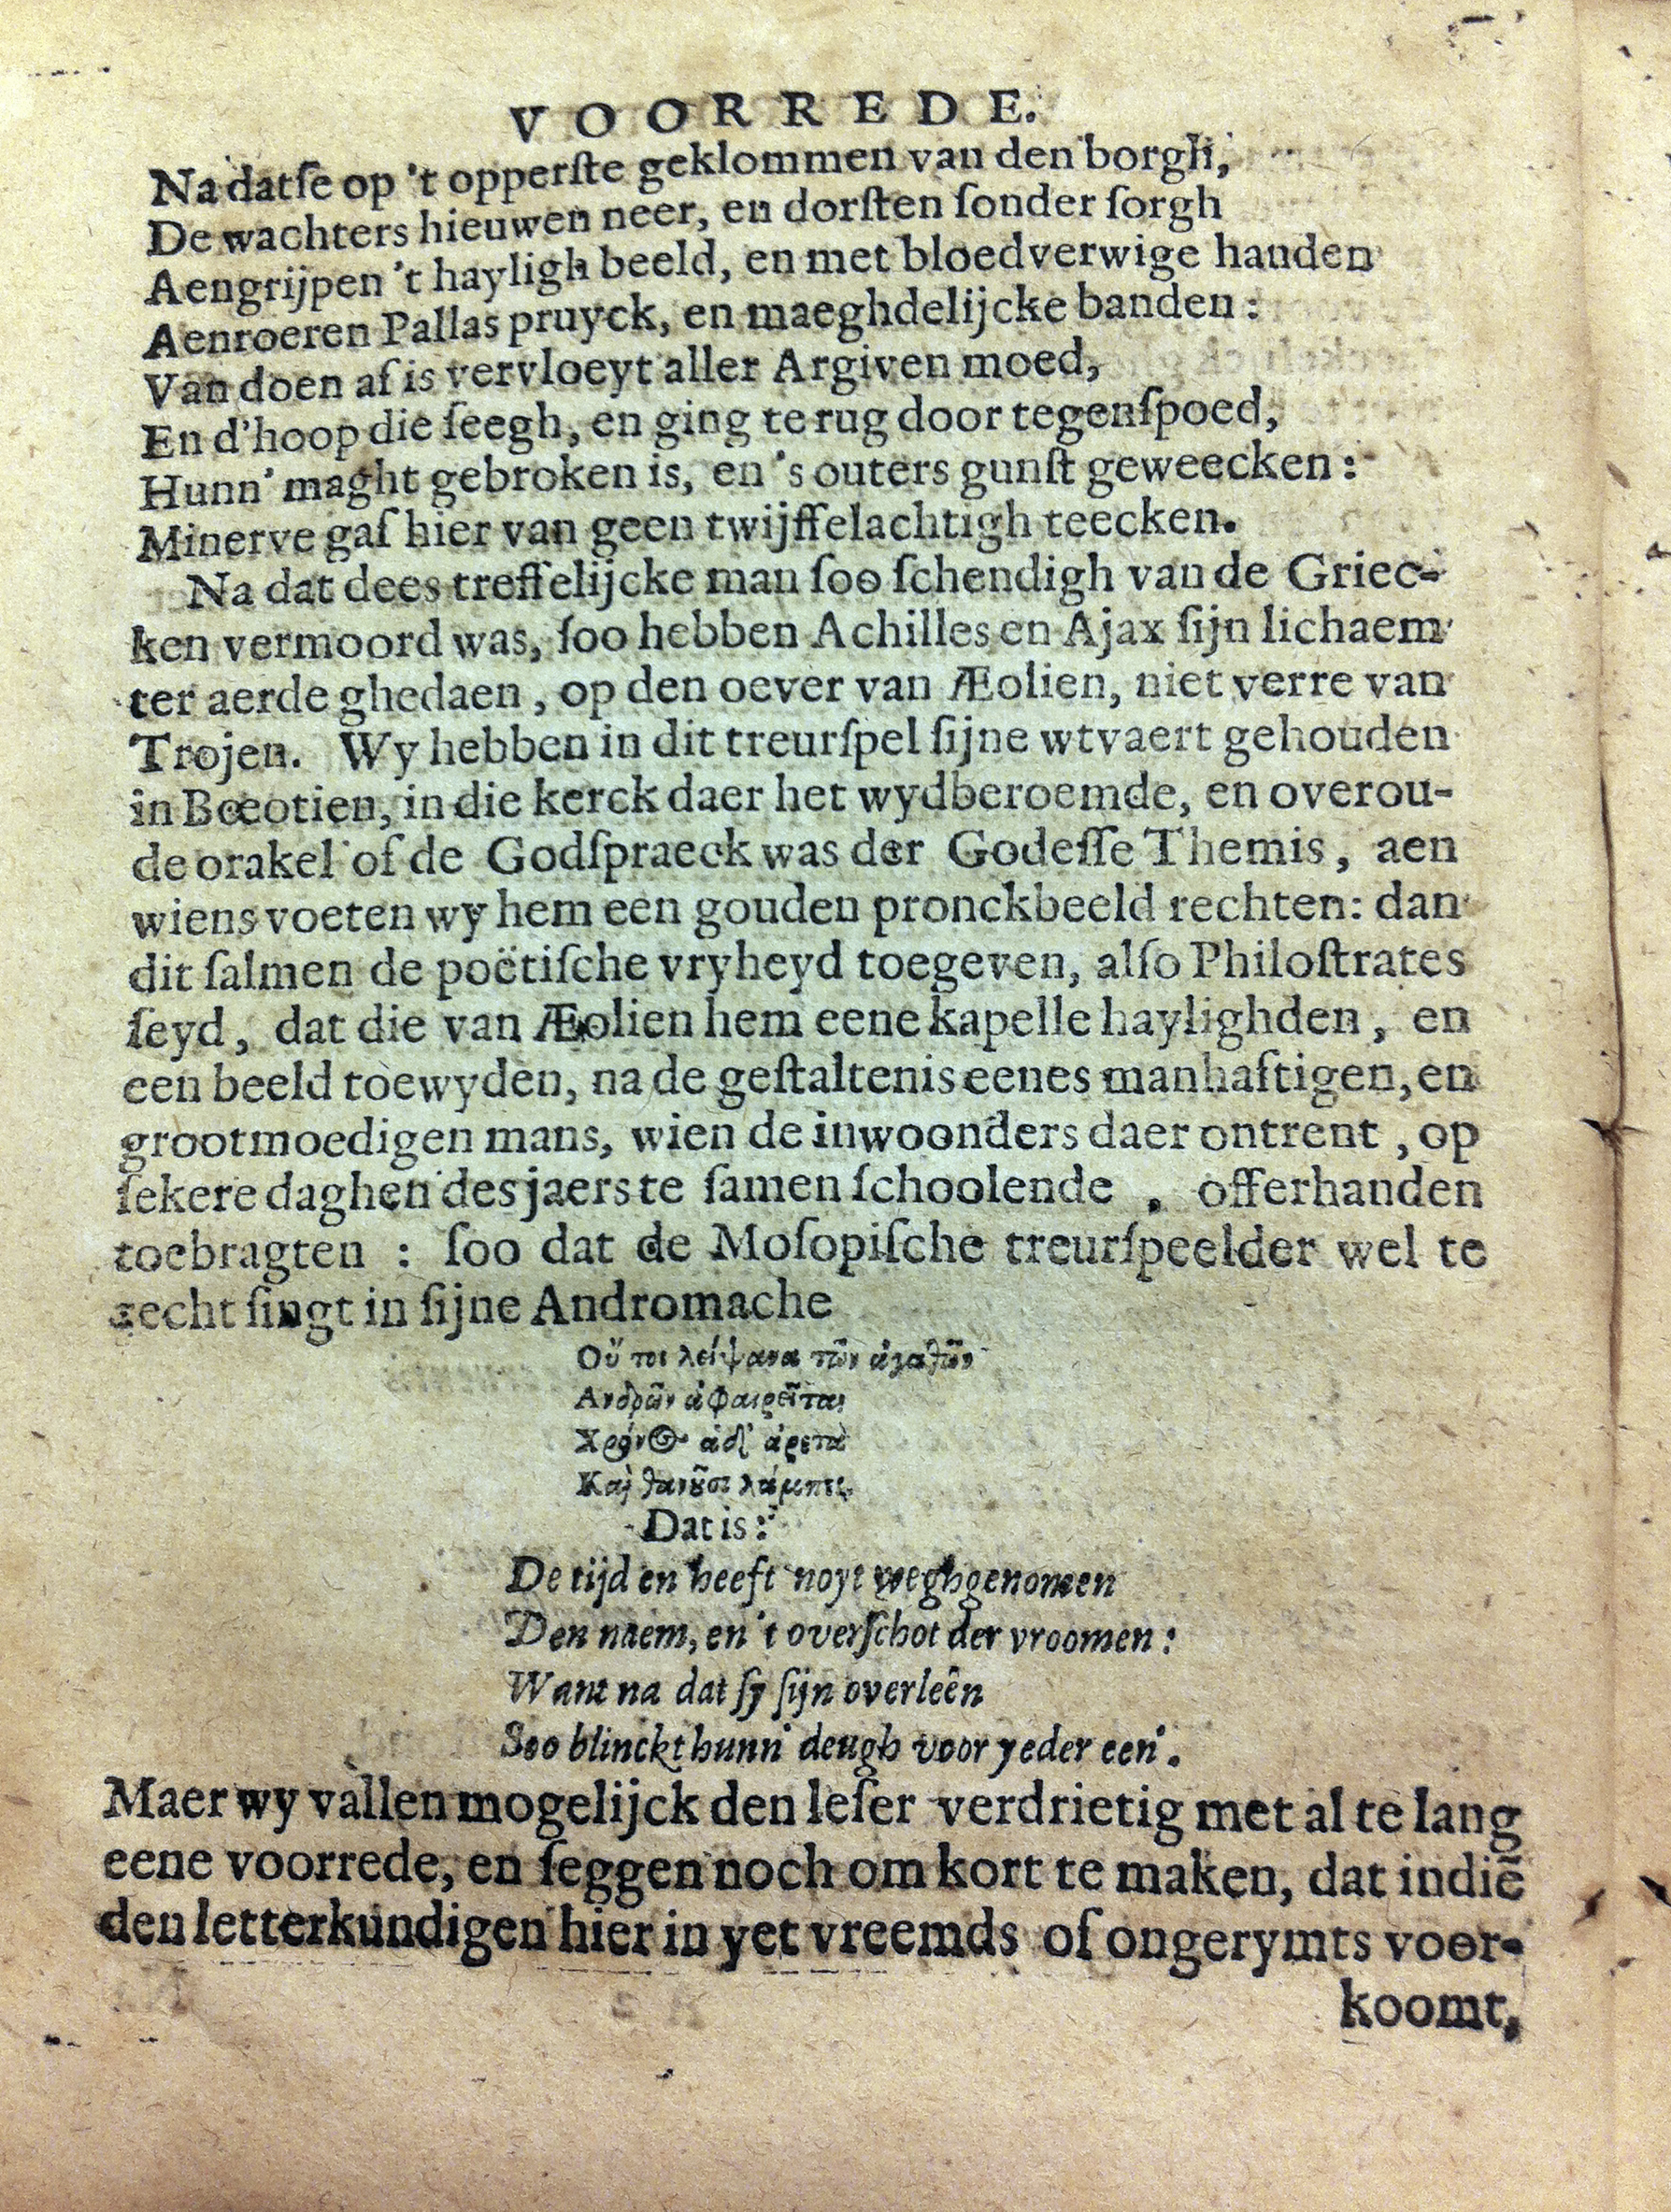 VOORREDE.
Na datſe op 't opperſte geklommen van den borgh,
De wachters hieuwen neer, en dorſten ſonder ſorgh
Aengrijpen 't hayligh beeld, en met bloedverwige handen
Aenroeren Pallas pruyck, en maeghdelijcke banden:
Van doen af is vervloeyt aller Argiven moed,
En d'hoop die ſeegh, en ging te rug door tegenſpoed,
Hunn' maght gebroken is, en 's outers gunſt geweecken:
Minerve gaf hier van geen twijffelachtigh teecken.
Na dat dees treffelijcke man ſoo ſchendigh van de Griec-
ken vermoord was, ſoo hebben Achilles en Ajax ſijn lichaem
ter aerde ghedaen, op den oever van Æolien, niet verre van
Trojen. Wy hebben in dit treurſpel ſijne wtvaert gehouden
in Bœotien, in die kerck daer het wydberoemde, en overou-
de orakel of de Godſpraeck was der Godeſſe Themis, aen
wiens voeten wy hem een gouden pronckbeeld rechten: dan
dit ſalmen de poëtiſche vryheyd toegeven, alſo Philoſtrates
ſeyd, dat die van Æolien hem eene kapelle haylighden, en
een beeld toewyden, na de geſtaltenis eenes manhaftigen, en
grootmoedigen mans, wien de inwoonders daer ontrent, op
ſekere daghen des jaers te ſamen ſchoolende, offerhanden
toebragten: ſoo dat de Moſopiſche treurſpeelder wel te
recht ſingt in ſijne Andromache
Οὔ τοι λείψανα τῶν ἀγαθῶν
Ανδρῶν ἀφαιρεῖται
Χρόνος ἁδ' ἀρετὰ
Καὶ θανοῦσι λάμπει.
Dat is:
De tijd en heeft noyt weghgenomen
Den naem, en 't overſchot der vroomen:
Want na dat ſy ſijn overleên
Soo blinckt hunn' deugh voor yeder een'.
Maer wy vallen mogelijck den leſer verdrietig met al te lang
eene voorrede, en ſeggen noch om kort te maken, dat indiē
den letterkundigen hier in yet vreemds of ongerymts voor-
koomt,